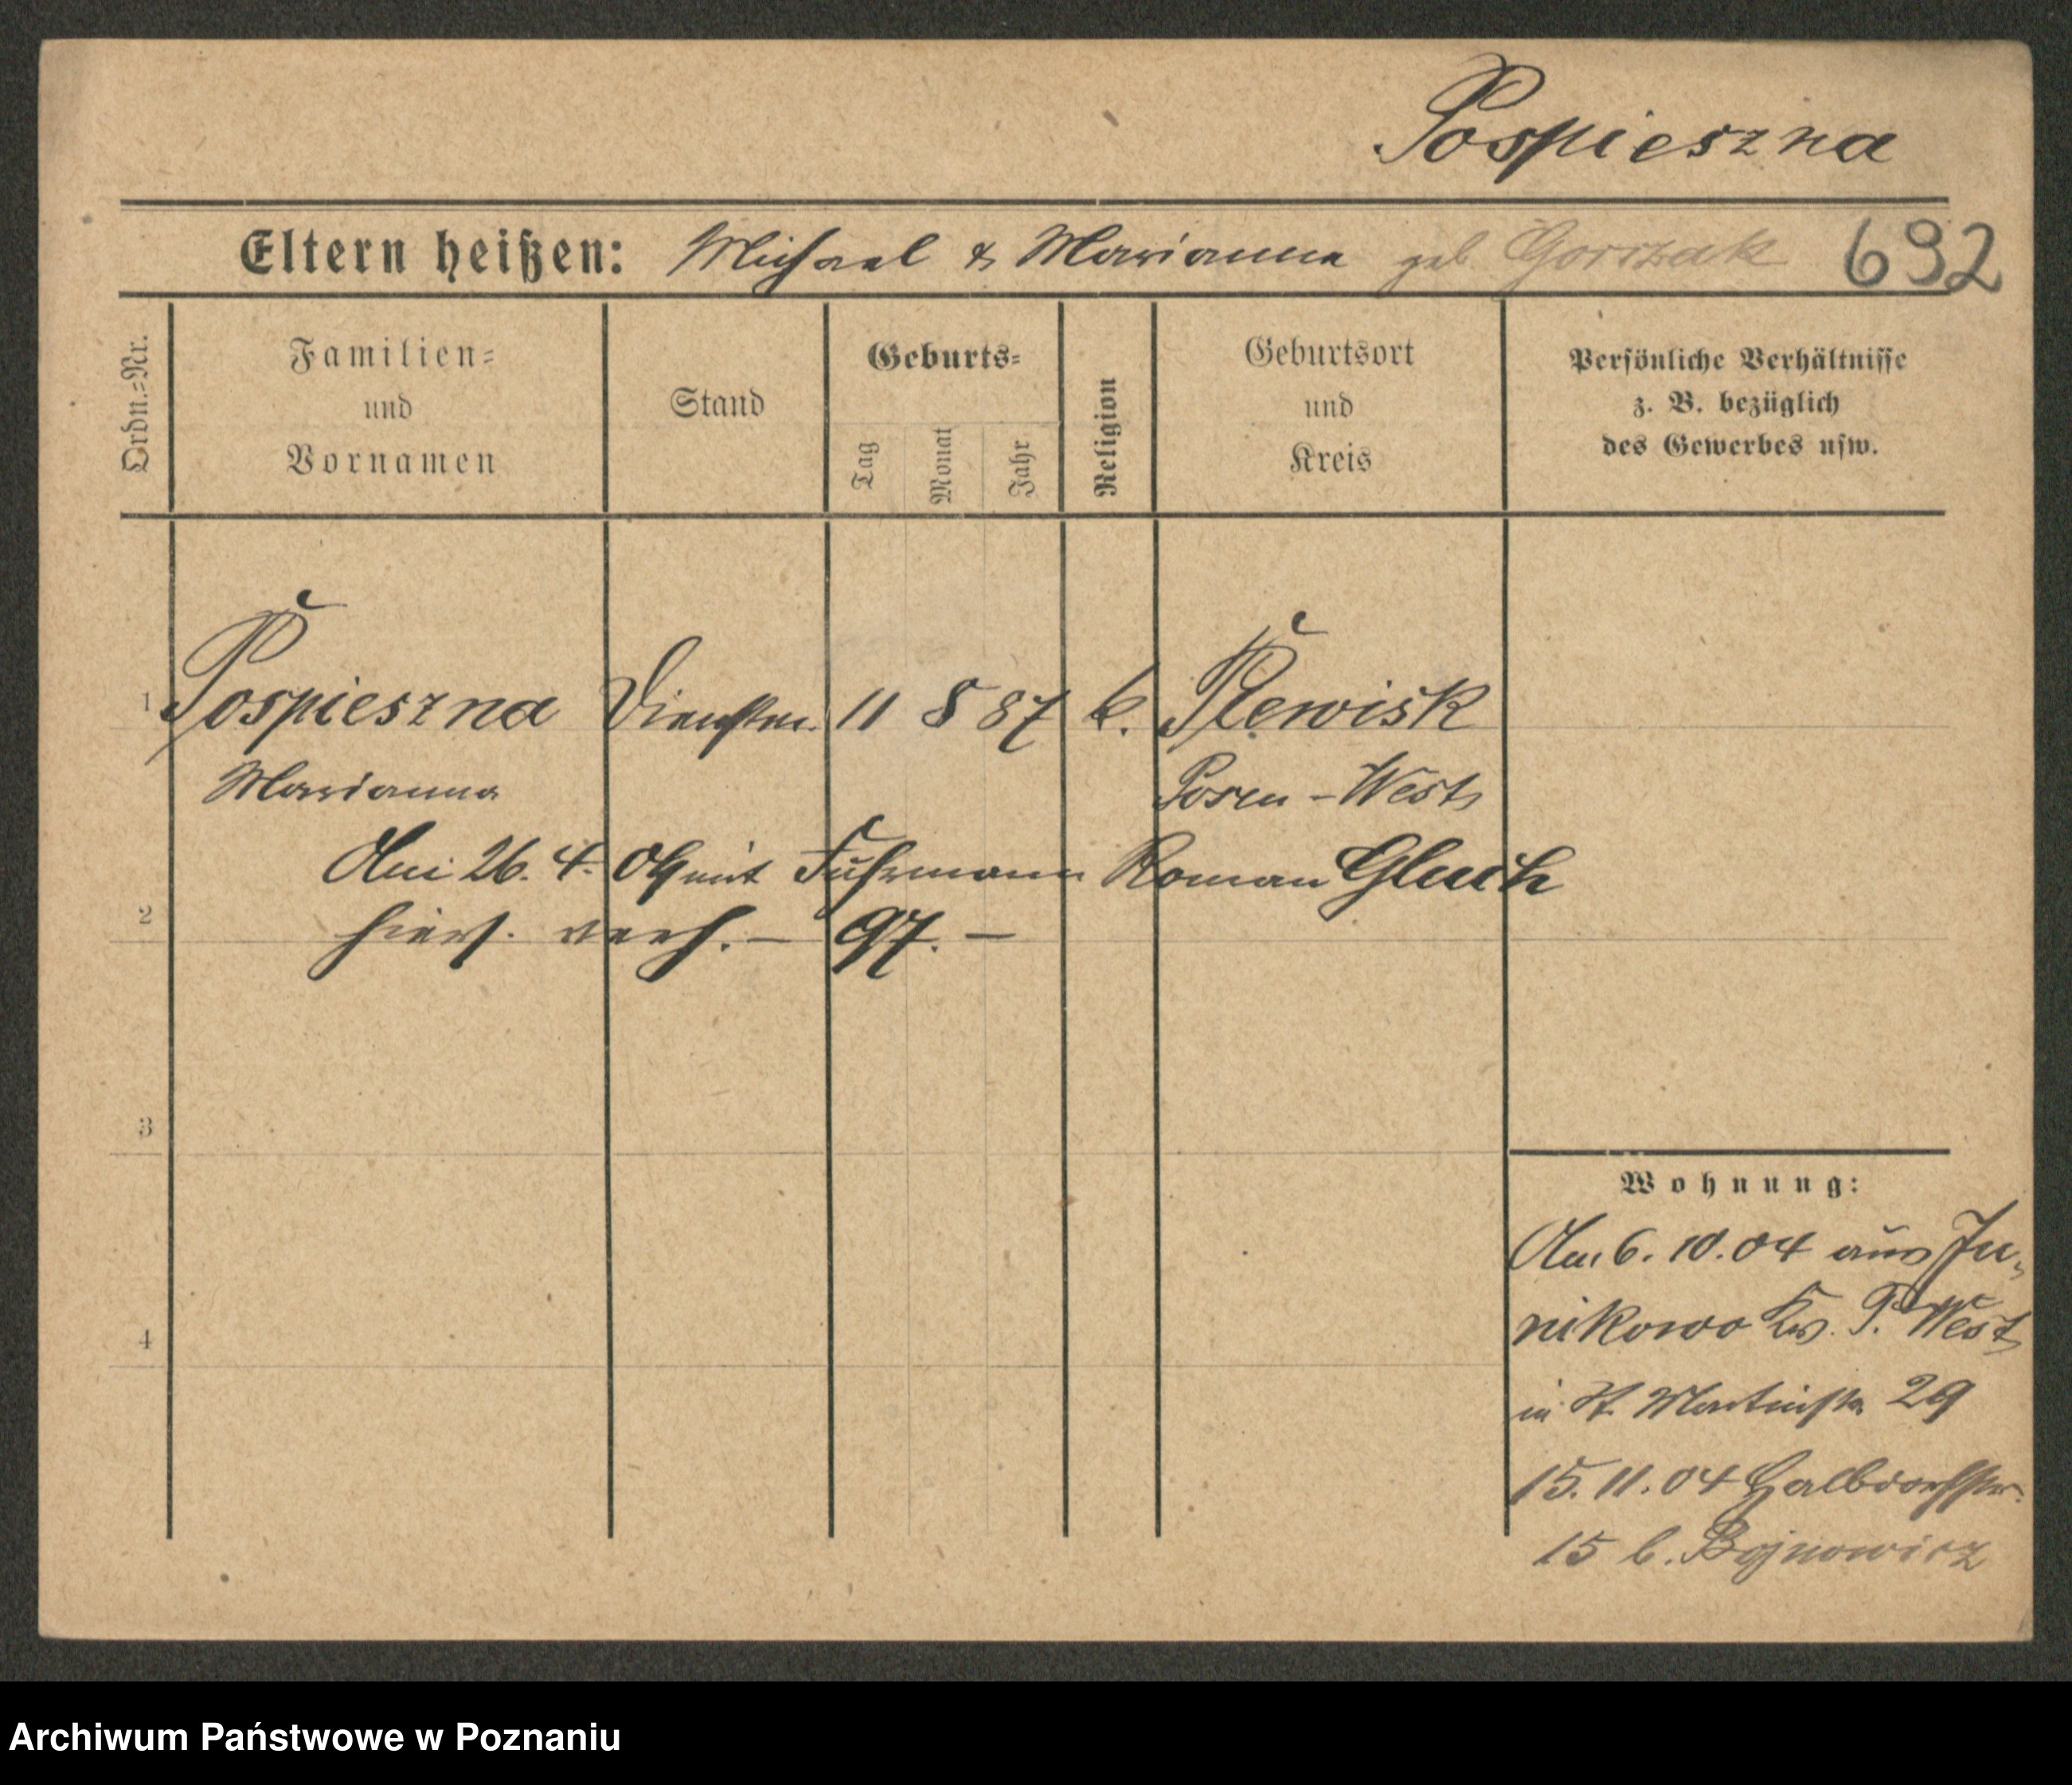 Pospieszna
Eltern heißen: Michael & Marianna geb Gorczak 692
Ordn.=Nr.
Familien=
und
Vornamen
Stand
Geburts=
Tag
Monat
Jahr
Religion
Geburtsort
und
Kreis
Persönliche Verhältnisse
z. B. bezüglich
des Gewerbes usw.
1 Pospieszna Dienstm. 11 8 87 k. Plewisk
Marianna Posen - West
Am 26. 4. 09 mit Fuhrmann Roman Gluch
2 hiers. verh. - 97. -
3
4
Wohnung:
Am 6. 10. 04 aus Ju-
nikowo Krs. P. West
in St. Martinstr 29
15. 11. 04 Halbdorfstr.
15 b. Bojnowicz
Archiwum Państwowe w Poznaniu